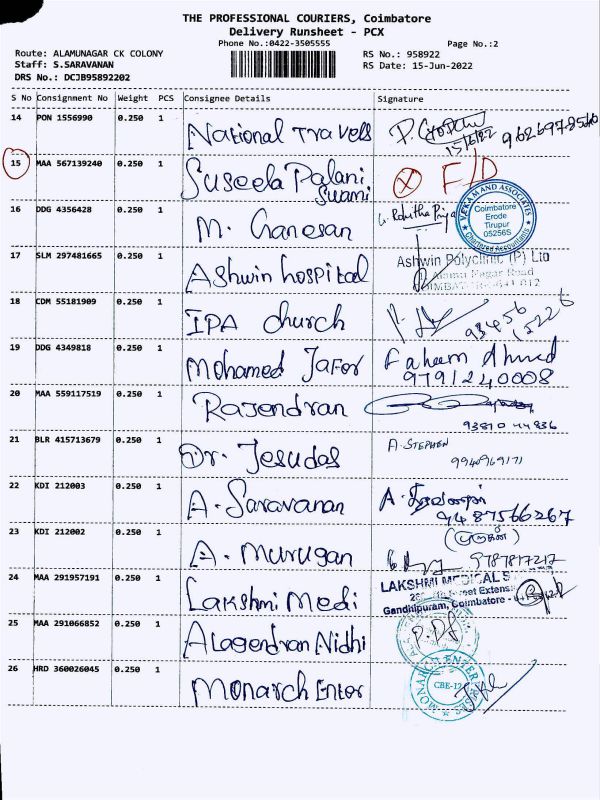 THE PROFESSIONAL COURIERS, Coimbatore
Delivery Runsheet - PCX
Phone No.:0422-3505555
Page No.:2
Route: ALAMUNAGAR CK COLONY
RS No.: 958922
Staff: S.SARAVANAN
RS Date: 15-Jun-2022
DRS No.: DCJB95892202
S No Consignment No Weight PCS Consignee Details Signature
14 PON 1556990 0.250 1 National Travels
15/6/22
15 MAA 567139240 0.250 1 Suseela Palani Swami F/D
VEKAM AND ASSOCIATES
Coimbatore
Erode
Tirupur
05256S
Chartered Accountants
16 DDG 4356428 0.250 1 M. Ganesan
17 SLM 297481665 0.250 1 Ashwin hospital
Ashwin Polyclinic (P) Ltd
Alamu Nagar Road
18 CDM 55181909 0.250 1 IPA church
93456
15226
19 DDG 4349818 0.250 1 Mohamed Jafor Faheem Ahmed
9791240008
20 MAA 559117519 0.250 1 Rajendran
93810 44836
21 BLR 415713679 0.250 1 Dr. Jesudas A. STEPHEN
9940969171
22 KDI 212003 0.250 1 A. Saravanan
9487566267
23 KDI 212002 0.250 1 A. Murugan
9787817217
24 MAA 291957191 0.250 1 Lakshmi Medi
LAKSHMI MEDICAL S
Gandhipuram, Coimbatore
25 MAA 291066852 0.250 1 Alagendran Nidhi
26 HRD 360026045 0.250 1 Monarch Enter
MONARCH ENTER
CBE-12